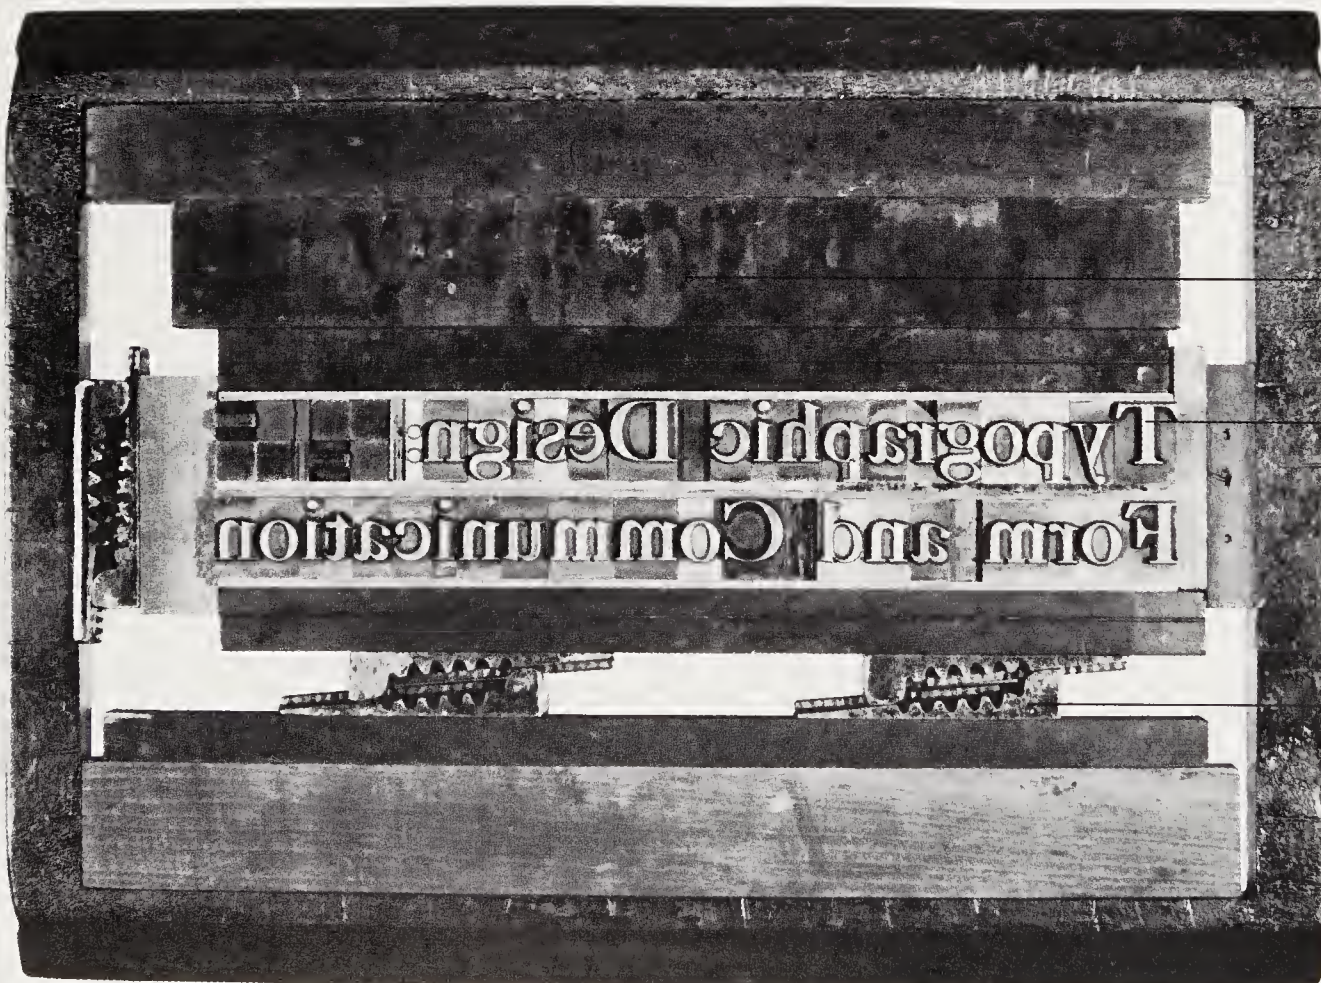 Typographic Design:
Form and Communication